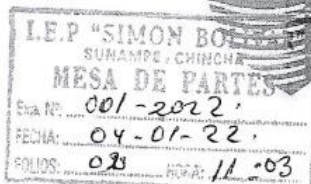 I.E.P "SIMON BO
SUNAMPE, CHINCHA
MESA DE PARTES
Exp. Nº: 001-2022
FECHA: 04-01-22
FOLIOS: HORA: 11:03